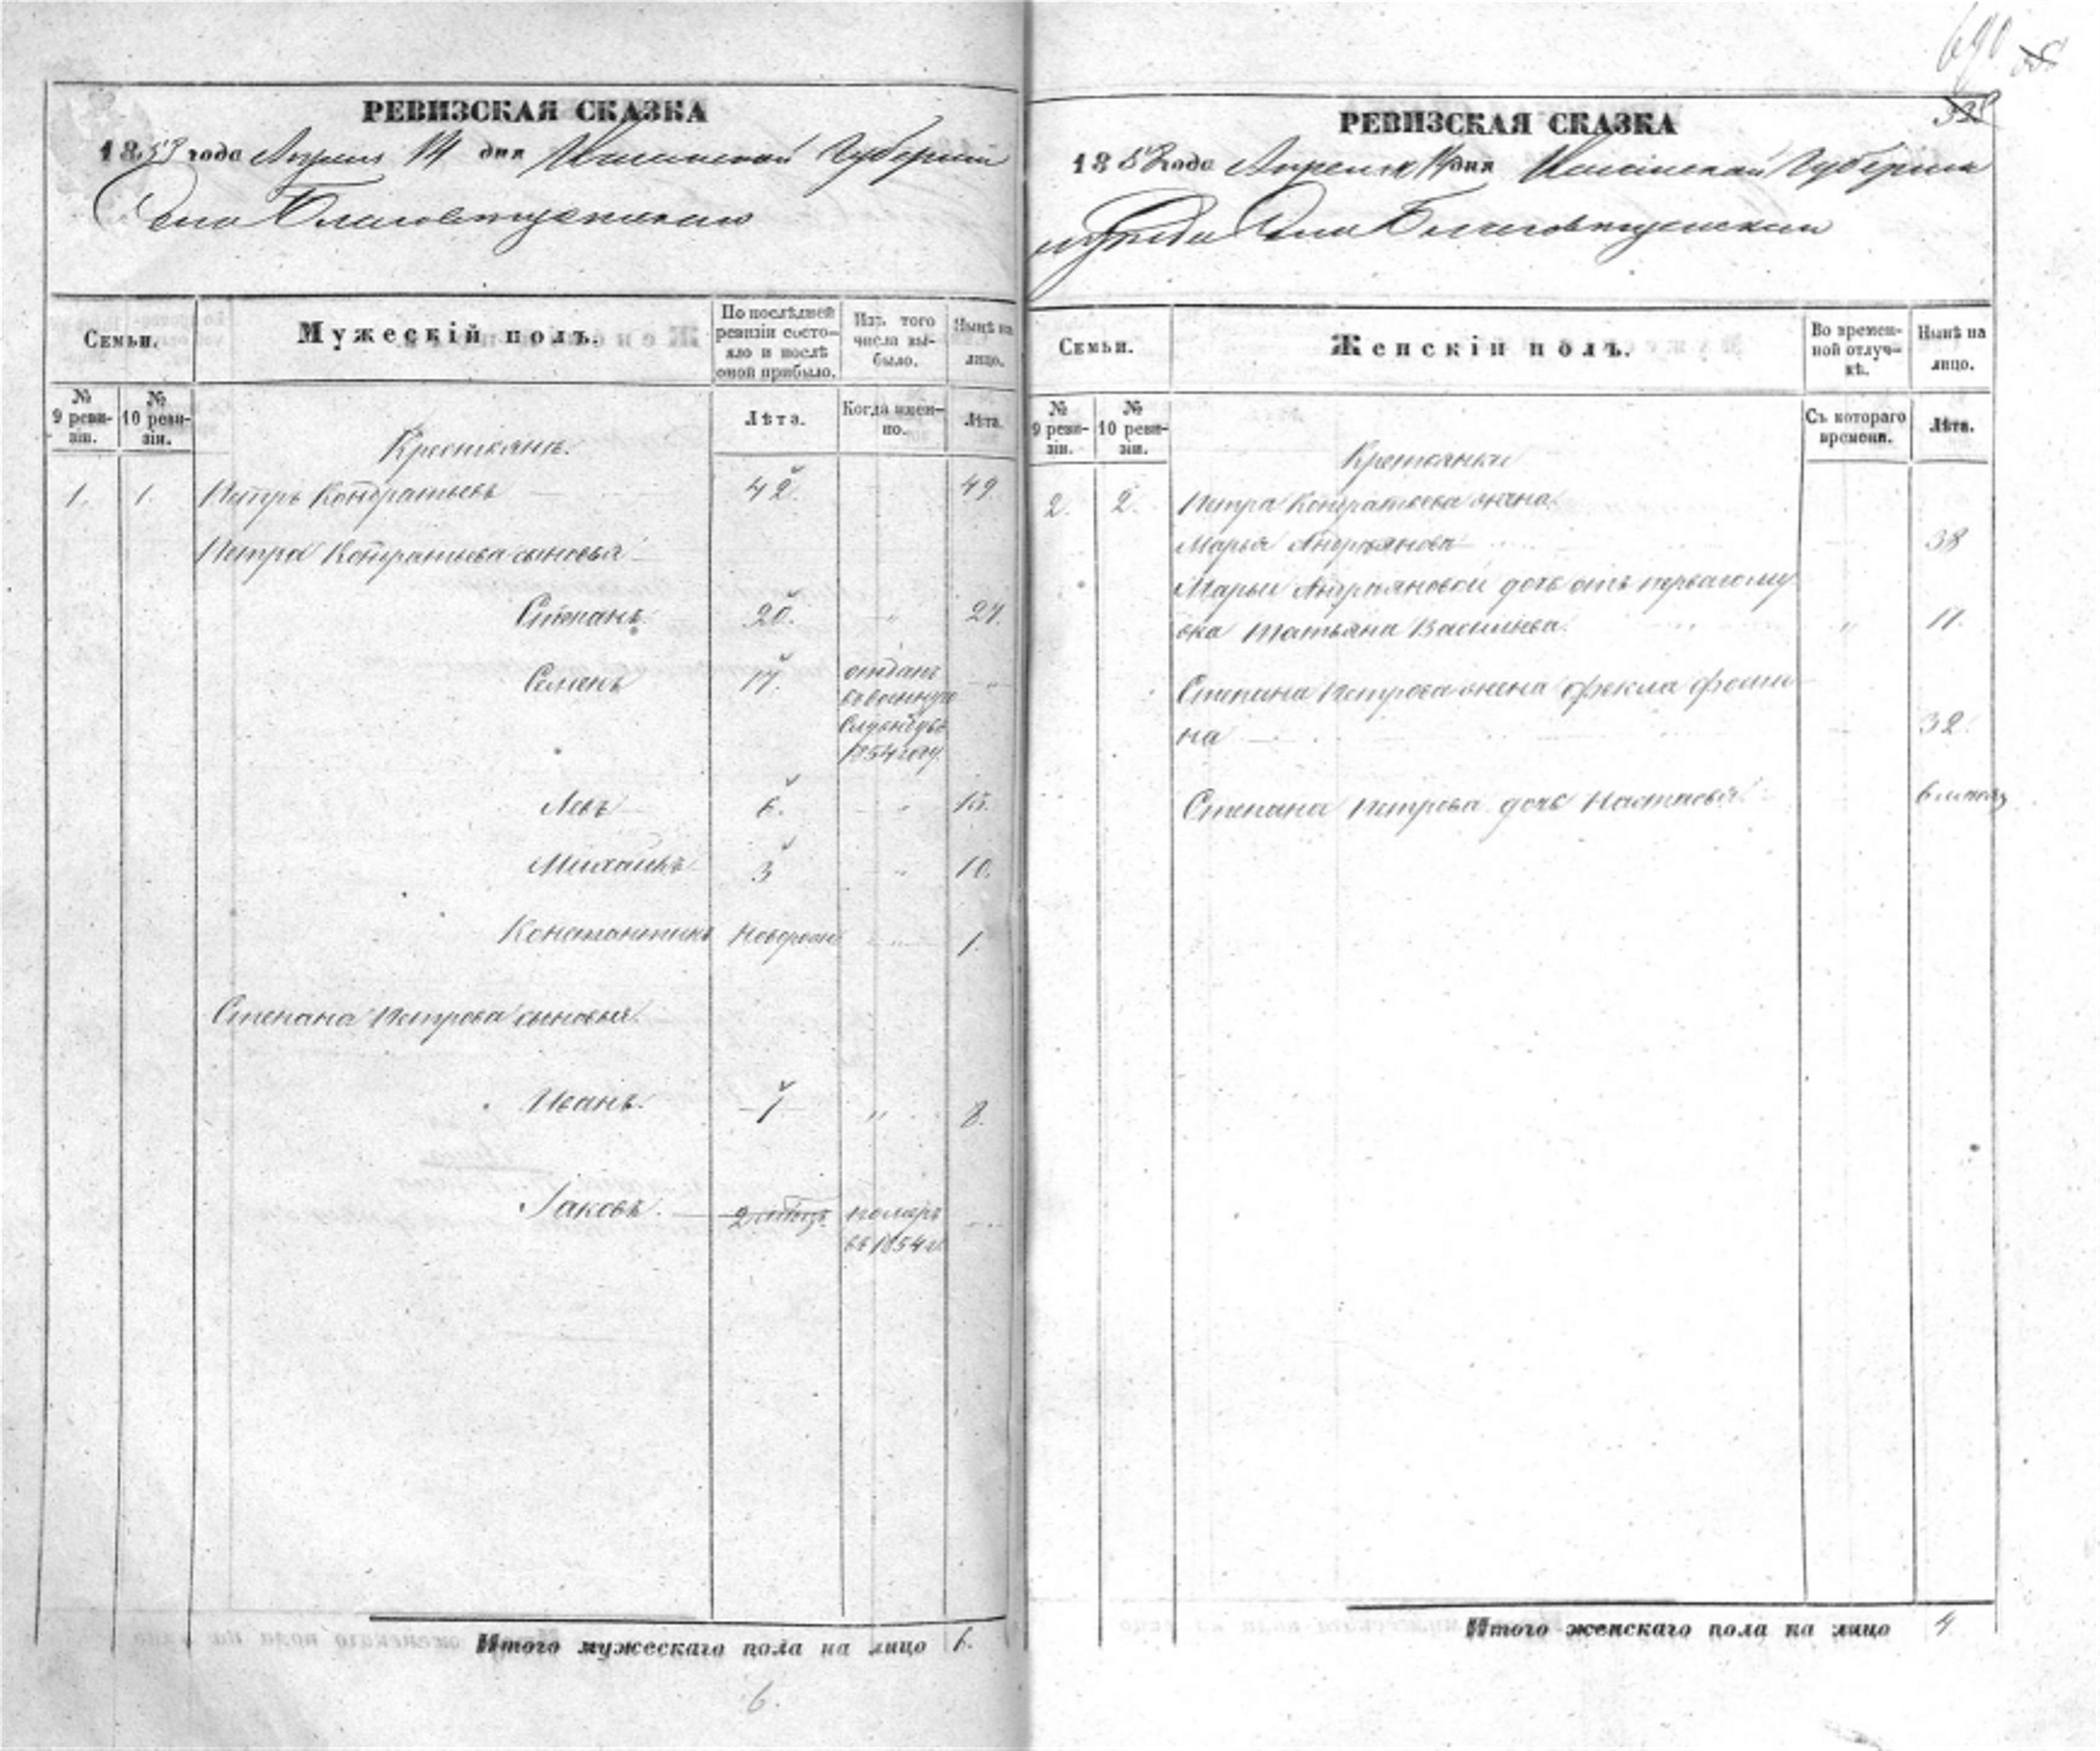 690
РЕВИЗСКАЯ СКАЗКА
1858 года Апреля 14 дня Губернии
Села Благовещенскаго
Семьи.
Мужескій полъ.
По послѣдней ревизіи состояло и послѣ оной прибыло.
Изъ того числа выбыло.
Нынѣ на лицо.
№ 9 ревизіи.
№ 10 ревизіи.
Лѣта.
Когда именно.
Лѣта.
Крестьянъ.
1. 1. Петръ Кондратьевъ 42. 49.
Петра Кондратьева сыновья
Степанъ 20. " 27.
Семенъ 17. отданъ
въ военную
службу въ
1854 году.
Левъ 6. " 15.
Михайлъ 3 " 10.
Константинъ новорож " 1.
Степана Петрова сыновья.
Иванъ. 1 " 8.
Іаковъ. 2 померъ
въ 1854 г.
Итого мужескаго пола на лицо 6.
6.
РЕВИЗСКАЯ СКАЗКА
1858 года Апреля 14 дня Губерніи
уѣзда Села Благовещенскаго
Семьи.
Женскій полъ.
Во временной отлучкѣ.
Нынѣ на лицо.
№ 9 ревизіи.
№ 10 ревизіи.
Съ котораго времени.
Лѣта.
Крестьянки
2. 2. Петра Кондратьева жена
Марья Андреянова 38
Марьи Андреяновой дочь отъ перваго му
жа Татьяна Васильева. " 11.
Степана Петрова жена Фекла Фоми
на 32.
Степана Петрова дочь Настасья. 6 месяц
Итого женскаго пола на лицо 4